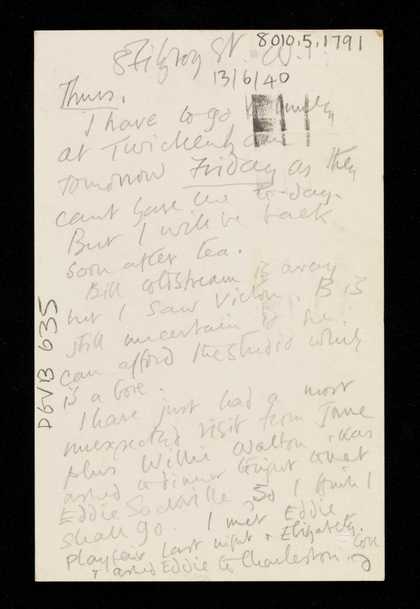 8 Fitzroy St. W.1.
8010.5.1791
13/6/40
Thurs.
I have to go to
at Twickenham
tomorrow Friday as they
cant have me to-day.
But I will be back
soon after tea.
Bill Coldstream is away
but I saw Victor. B is
still uncertain if he
can afford the studio which
is a bore.
I have just had a most
unexpected visit from Jane
plus Willie Walton & was
asked to dinner tonight to meet
Eddie Sackville, so I think I
shall go. I met Eddie
Playfair last night & Elizabeth
& asked Eddie to Charleston.
DGVB 635